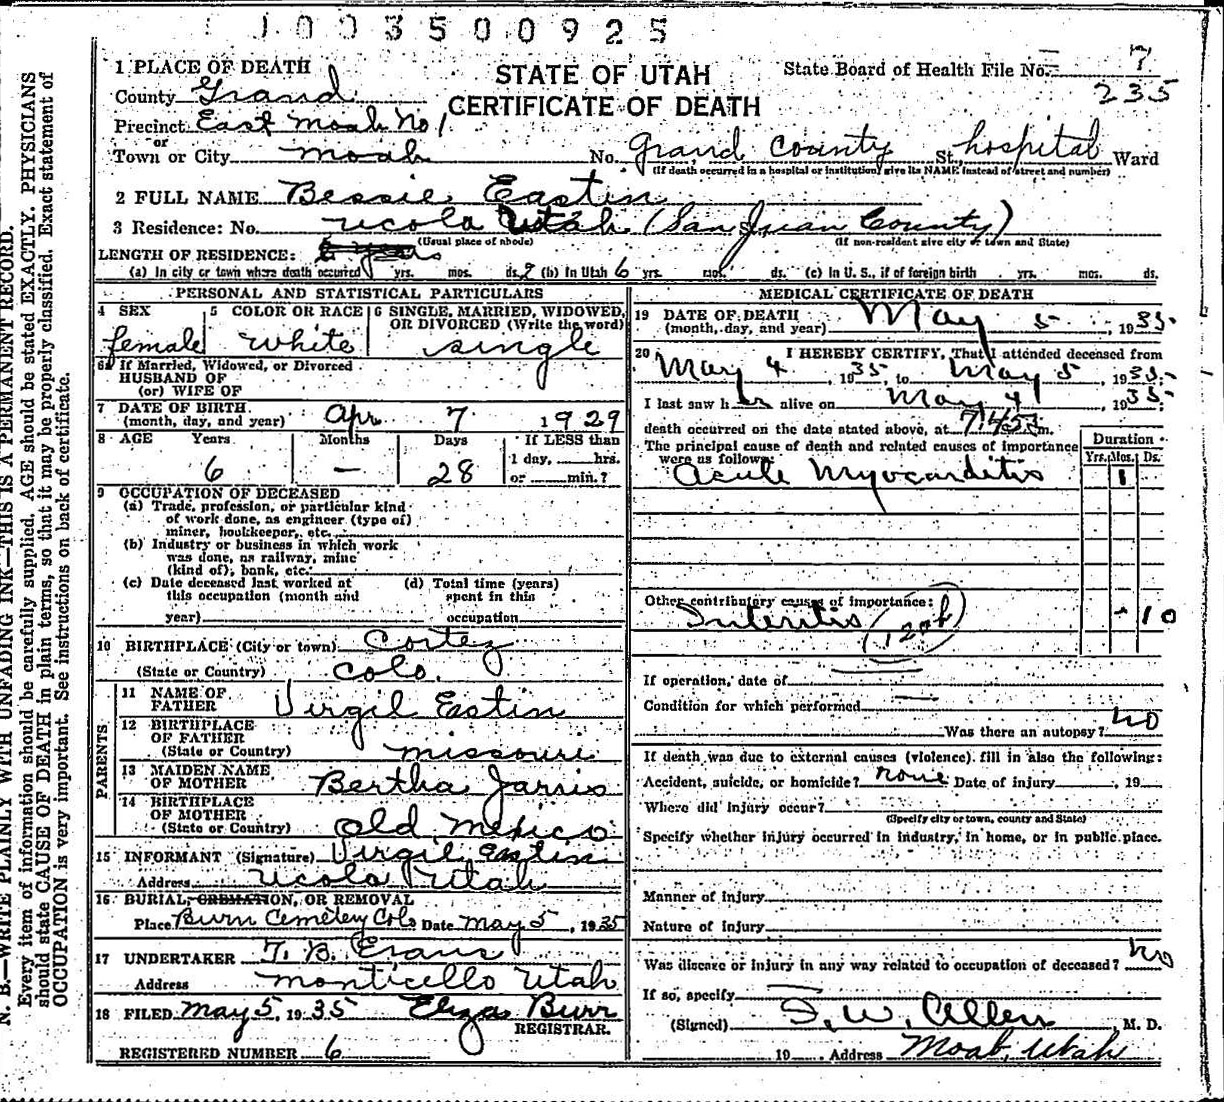 1003500925
1 PLACE OF DEATH
STATE OF UTAH
CERTIFICATE OF DEATH
State Board of Health File No. 7
235
County Grand
Precinct East Moab No 1
or
Town or City moab No. Grand County St. hospital Ward
(If death occurred in a hospital or institution, give its NAME instead of street and number)
2 FULL NAME Bessie Eastin
3 Residence: No. Ucola Utah (San Juan County)
(Usual place of abode) (If non-resident give city or town and State)
LENGTH OF RESIDENCE:
(a) In city or town where death occurred yrs. mos. ds. 2 (b) In Utah 6 yrs. mos. ds. (c) In U. S., if of foreign birth yrs. mos. ds.
PERSONAL AND STATISTICAL PARTICULARS
4 SEX 5 COLOR OR RACE 6 SINGLE, MARRIED, WIDOWED, OR DIVORCED (Write the word)
female white single
6a If Married, Widowed, or Divorced
HUSBAND OF
(or) WIFE OF
7 DATE OF BIRTH
(month, day, and year) Apr 7 1929
8 AGE Years Months Days If LESS than
1 day, hrs.
6 — 28 or min.?
9 OCCUPATION OF DECEASED
(a) Trade, profession, or particular kind
of work done, as engineer (type of)
miner, bookkeeper, etc.
(b) Industry or business in which work
was done, as railway, mine
(kind of), bank, etc.
(c) Date deceased last worked at (d) Total time (years)
this occupation (month and spent in this
year) occupation
10 BIRTHPLACE (City or town) Cortez
(State or Country) Colo.
PARENTS
11 NAME OF
FATHER Virgil Eastin
12 BIRTHPLACE
OF FATHER
(State or Country) missouri
13 MAIDEN NAME
OF MOTHER Bertha Jarvis
14 BIRTHPLACE
OF MOTHER
(State or Country) Old Mexico
15 INFORMANT (Signature) Virgil Eastin
Address Ucola Utah
16 BURIAL, CREMATION, OR REMOVAL
Place Burn Cemetery Colo Date May 5, 1935
17 UNDERTAKER T. B. Evans
Address Monticello Utah
18 FILED May 5, 1935 Eliza Burr
REGISTRAR.
REGISTERED NUMBER 6
MEDICAL CERTIFICATE OF DEATH
19 DATE OF DEATH
(month, day, and year) May 5, 1935
20 I HEREBY CERTIFY, That I attended deceased from
May 4, 1935 to May 5, 1935
I last saw her alive on May 4, 1935
death occurred on the date stated above, at
The principal cause of death and related causes of importance
were as follows:
Duration
Yrs. Mos. Ds.
Acute Myocarditis 1
Other contributory causes of importance:
Enteritis (120b) - 10
If operation, date of
Condition for which performed
Was there an autopsy? no
If death was due to external causes (violence) fill in also the following:
Accident, suicide, or homicide? none Date of injury , 19
Where did injury occur?
(Specify city or town, county and State)
Specify whether injury occurred in industry, in home, or in public place.
Manner of injury
Nature of injury
Was disease or injury in any way related to occupation of deceased? no
If so, specify
(Signed) I. W. Allen, M. D.
19 Address Moab, Utah
N. B.—WRITE PLAINLY WITH UNFADING INK—THIS IS A PERMANENT RECORD.
Every item of information should be carefully supplied. AGE should be stated EXACTLY. PHYSICIANS
should state CAUSE OF DEATH in plain terms, so that it may be properly classified. Exact statement of
OCCUPATION is very important. See instructions on back of certificate.